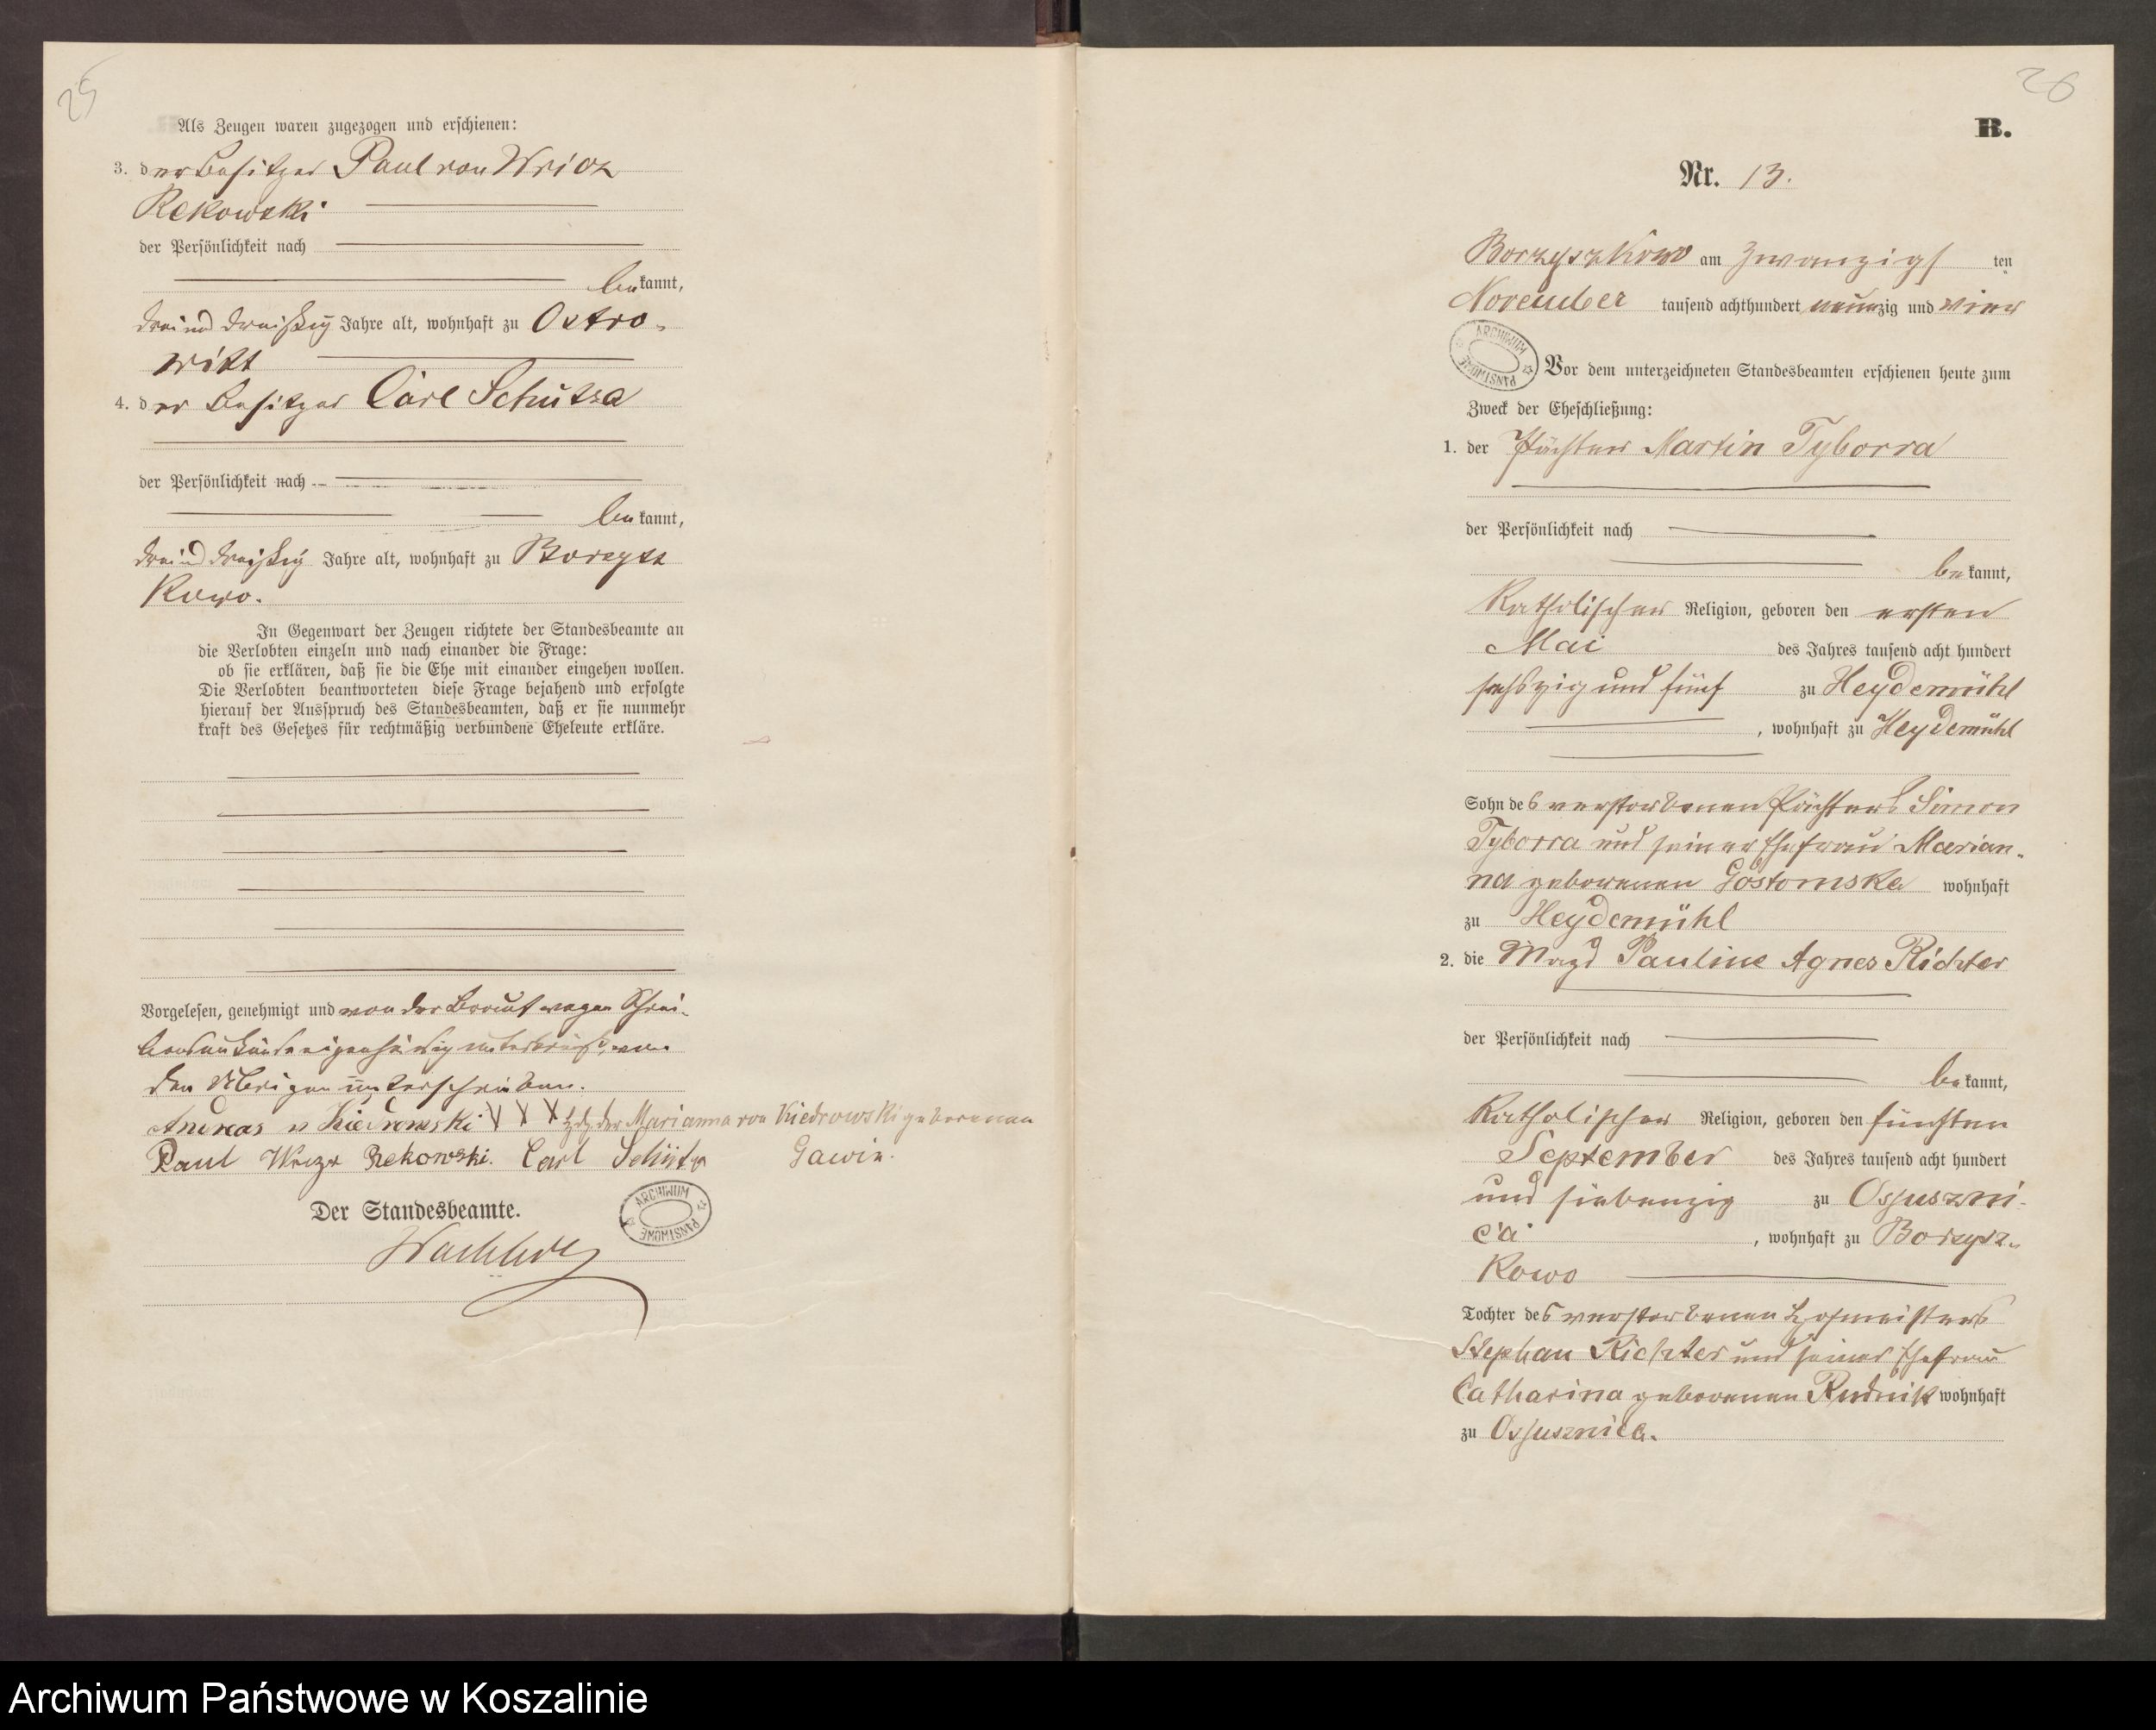 25
Als Zeugen waren zugezogen und erschienen:
3. der Besitzer Paul von Wricz
Rekowski
der Persönlichkeit nach
bekannt,
dreiund dreißig Jahre alt, wohnhaft zu Ostro-
witt
4. der Besitzer Carl Schütza
der Persönlichkeit nach
bekannt,
dreiund dreißig Jahre alt, wohnhaft zu Borzysz
kowo.
In Gegenwart der Zeugen richtete der Standesbeamte an
die Verlobten einzeln und nach einander die Frage:
ob sie erklären, daß sie die Ehe mit einander eingehen wollen.
Die Verlobten beantworteten diese Frage bejahend und erfolgte
hierauf der Ausspruch des Standesbeamten, daß er sie nunmehr
kraft des Gesetzes für rechtmäßig verbundene Eheleute erkläre.
Vorgelesen, genehmigt und von der Braut wegen Schrei-
bensunkunde eigenhändig unterkreuzt, von
den Übrigen unterschrieben.
Andreas v Kiedrowski X X X Hdz. der Marianna von Kiedrowski geborenen
Gawin.
Paul Wrycz Rekowski. Carl Schütz
Der Standesbeamte.
ARCHIWUM PAŃSTWOWE
26
B.
Nr. 13.
Borzyszkowo am zwanzigsten
November tausend achthundert neunzig und vier
ARCHIWUM PAŃSTWOWE
Vor dem unterzeichneten Standesbeamten erschienen heute zum
Zweck der Eheschließung:
1. der Pächter Martin Tyborra
der Persönlichkeit nach
bekannt,
katholischer Religion, geboren den ersten
Mai des Jahres tausend acht hundert
sechszig und fünf zu Heydemühl
, wohnhaft zu Heydemühl
Sohn des verstorbenen Pächters Simon
Tyborra und seiner Ehefrau Marian-
na geborenen Gostomska wohnhaft
zu Heydemühl
2. die Magd Pauline Agnes Richter
der Persönlichkeit nach
bekannt,
katholischer Religion, geboren den fünften
September des Jahres tausend acht hundert
und siebenzig zu Ossuszni-
ca , wohnhaft zu Borzysz-
kowo
Tochter des verstorbenen Hofmeisters
Stephan Richter und seiner Ehefrau
Catharina geborenen Rudnik wohnhaft
zu Ossusznica.
Archiwum Państwowe w Koszalinie